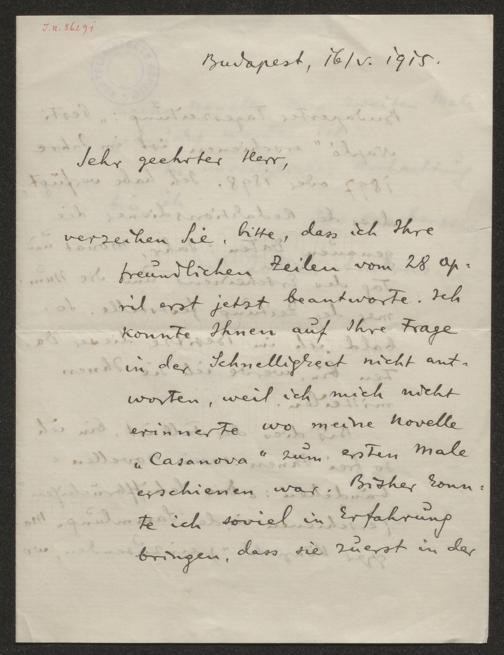 J.N. 86291
Budapest, 16/V. 1915.
Sehr geehrter Herr,
verzeihen Sie, bitte, dass ich Ihre
freundlichen Zeilen vom 28 Ap-
ril erst jetzt beantworte. Ich
konnte Ihnen auf Ihre Frage
in der Schnelligkeit nicht ant-
worten, weil ich mich nicht
erinnerte wo meine Novelle
„Casanova" zum ersten Male
erschienen war. Bisher konn-
te ich soviel in Erfahrung
bringen, dass sie zuerst in der